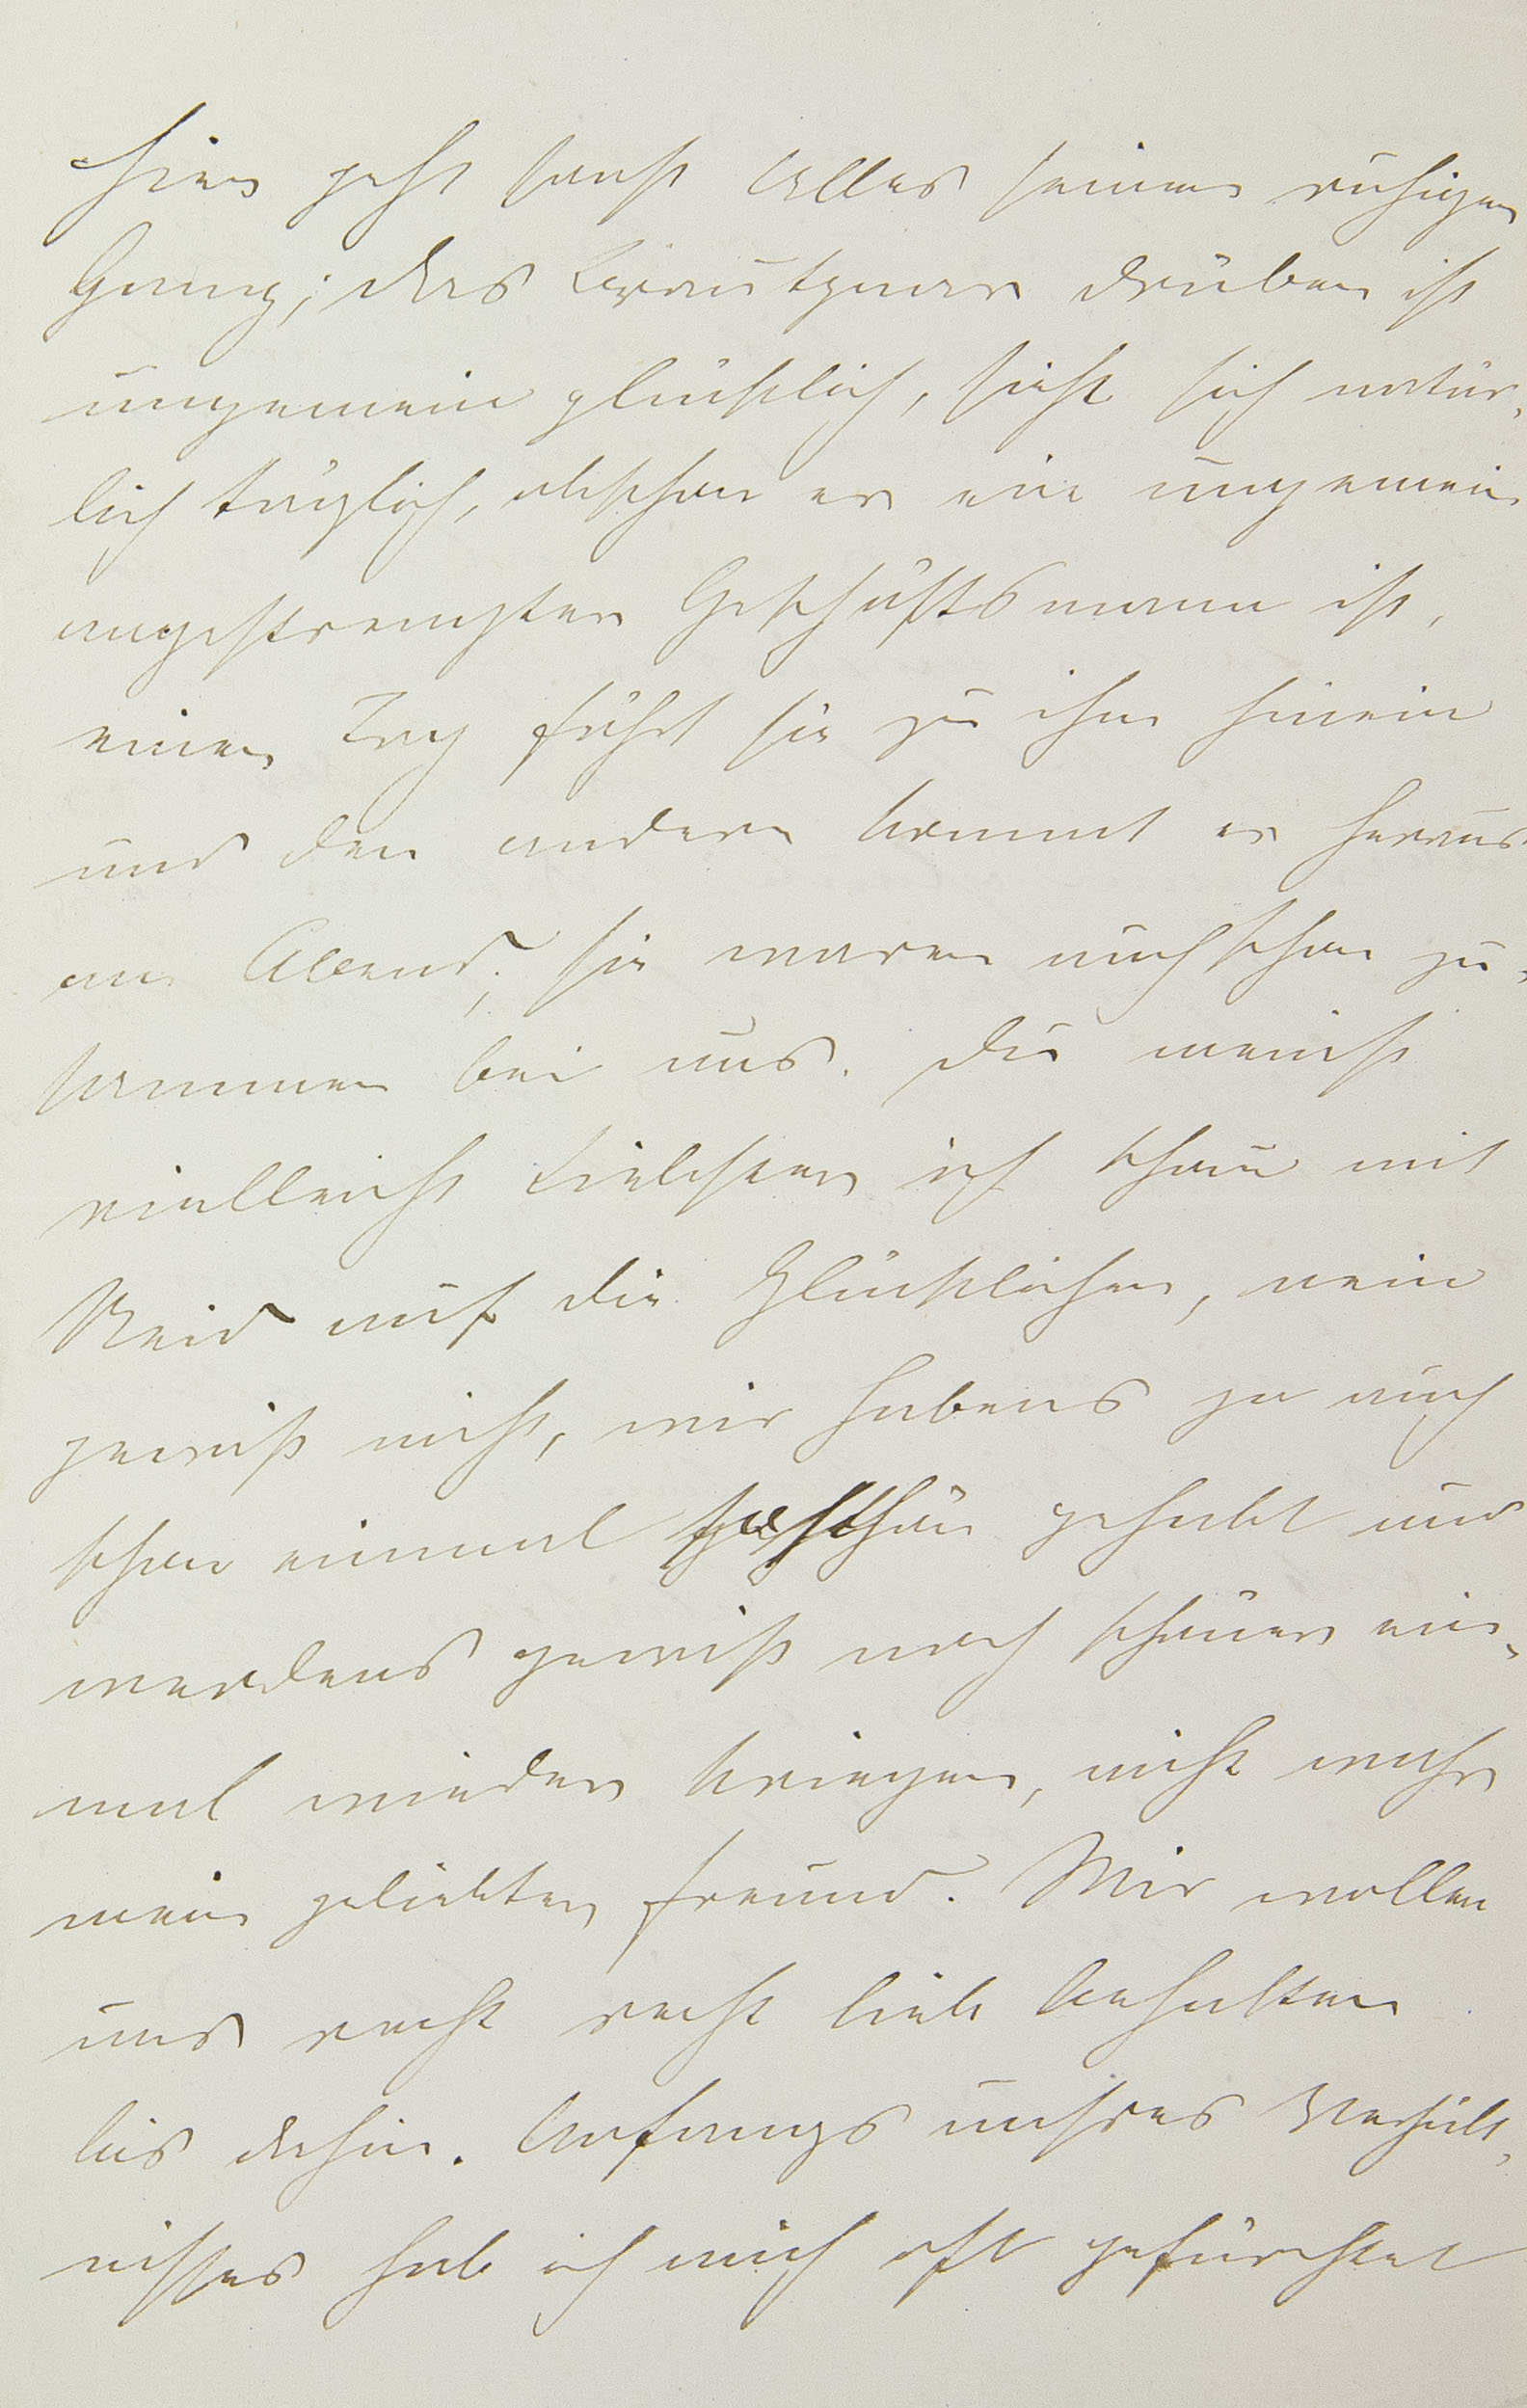 Hier geht sonst Alles seinen ruhigen
Gang; das Brautpaar drüben ist
ungemein glücklich, sieht sich natür-
lich täglich, obschon er ein ungemein
angestrengter Geschäftsmann ist,
einen Tag fährt sie zu ihm hinein
und den andern kommt er heraus
am Abend; sie waren auch schon zu-
sammen bei uns. Du meinst
vielleicht Liebster ich schau mit
Neid auf die Glücklichen, nein
gewiß nicht, wir habens ja auch
schon einmal schön gehabt und
werdens gewiß noch schöner ein-
mal wieder kriegen, nicht wahr
mein geliebter Freund. Wir wollen
uns recht recht lieb behalten
bis dahin. Anfangs unsres Verhält-
nisses hab ich mich oft gefürchtet